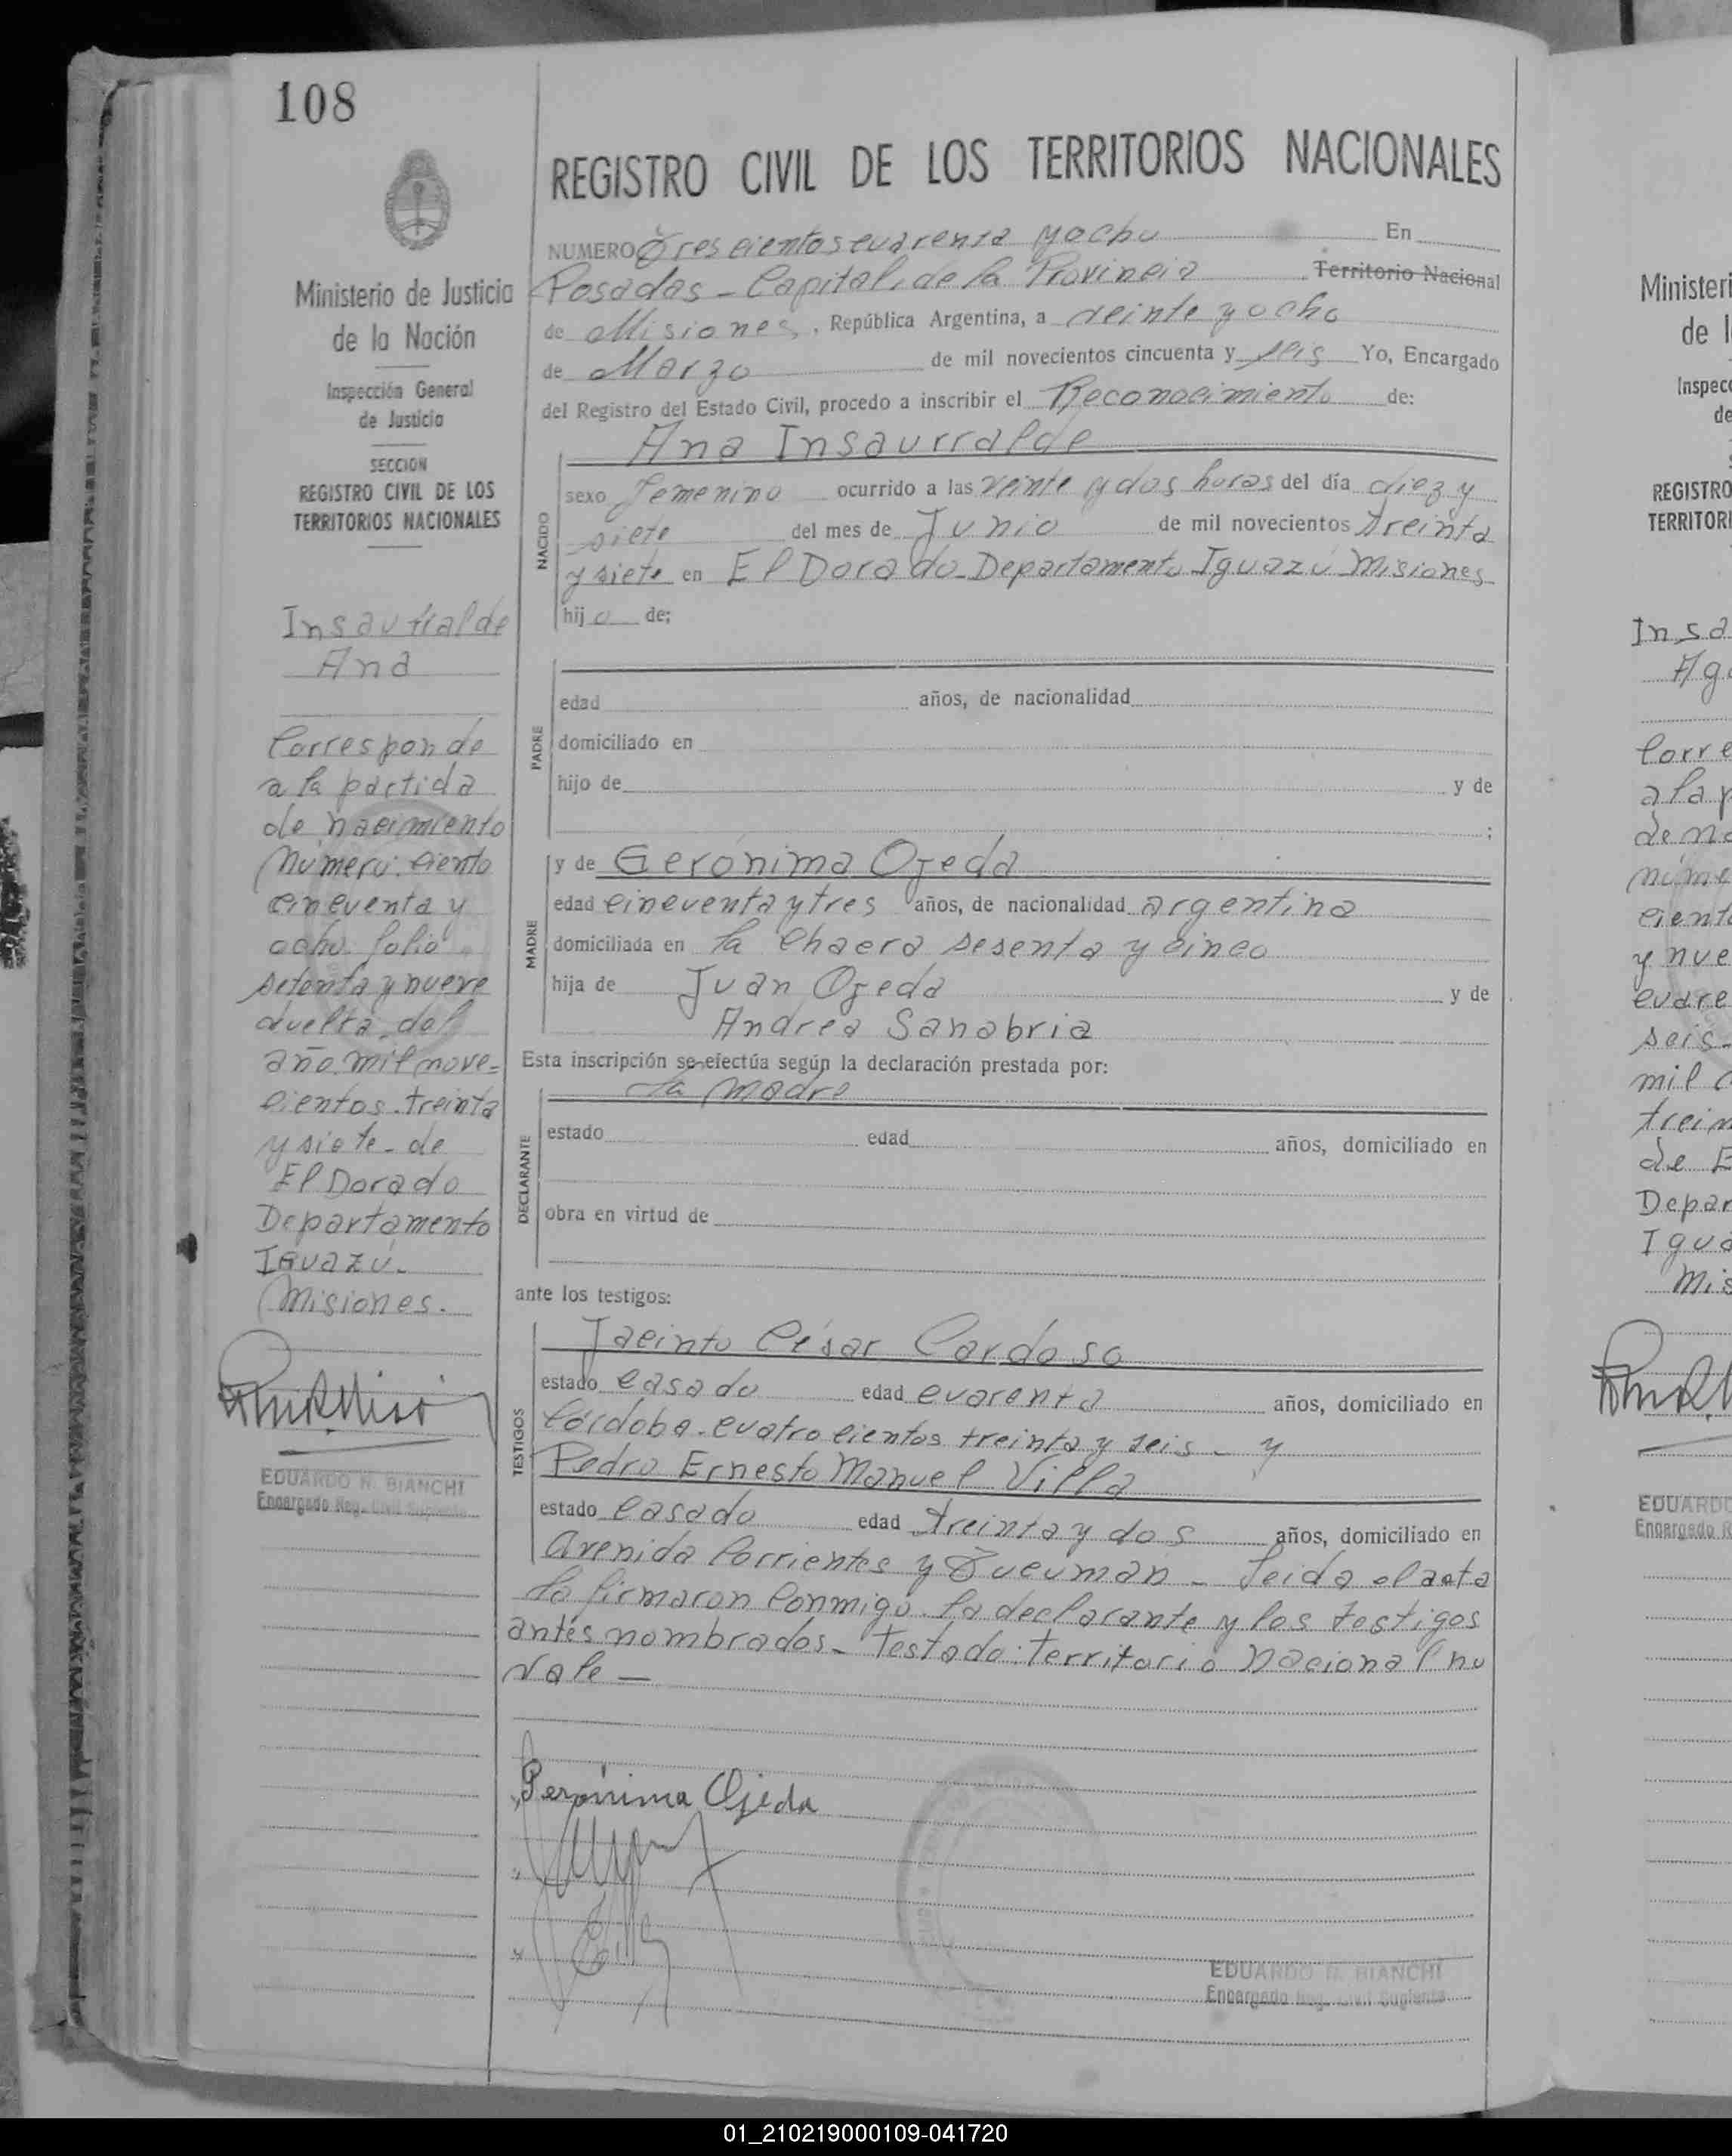 108
Ministerio de Justicia
de la Nación
Inspección General
de Justicia
SECCION
REGISTRO CIVIL DE LOS
TERRITORIOS NACIONALES
Insaurralde
Ana
Corresponde
a la partida
de nacimiento
Número: ciento
cincuenta y
ocho folio
setenta y nueve
vuelta del
año mil nove-
cientos treinta
y siete - de
El Dorado
Departamento
Iguazú.
Misiones.
EDUARDO R. BIANCHI
Encargado Reg. Civil Suplente
REGISTRO CIVIL DE LOS TERRITORIOS NACIONALES
NUMERO Trescientos cuarenta y ocho En
Posadas - Capital, de la Provincia Territorio Nacional
de Misiones, República Argentina, a veinte y ocho
de Marzo de mil novecientos cincuenta y seis Yo, Encargado
del Registro del Estado Civil, procedo a inscribir el Reconocimiento de:
Ana Insaurralde
NACIDO
sexo femenino ocurrido a las veinte y dos horas del día diez y
siete del mes de Junio de mil novecientos treinta
y siete en El Dorado - Departamento Iguazú Misiones
hija de;
PADRE
edad años, de nacionalidad
domiciliado en
hijo de y de
;
MADRE
y de Gerónima Ojeda
edad cincuenta y tres años, de nacionalidad argentina
domiciliada en la chacra sesenta y cinco
hija de Juan Ojeda y de
Andrea Sanabria
Esta inscripción se efectúa según la declaración prestada por:
la madre
DECLARANTE
estado edad años, domiciliado en
obra en virtud de
ante los testigos:
TESTIGOS
Jacinto César Cardoso
estado casado edad cuarenta años, domiciliado en
Córdoba - cuatrocientos treinta y seis - y
Pedro Ernesto Manuel Villa
estado casado edad treinta y dos años, domiciliado en
Avenida Corrientes y Tucumán - Leída el acta
la firmaron conmigo la declarante y los testigos
antes nombrados - Testado: territorio nacional no
vale —
Gerónima Ojeda
EDUARDO R. BIANCHI
Encargado Reg. Civil Suplente
Ministeri
de l
Inspec
de
REGISTRO
TERRITORI
Insa
Ag
Corre
a la p
de na
núme
cient
y nue
cuare
seis-
mil
trein
de E
Depar
Igua
Mis
EDUARDO
Encargado R
01_210219000109-041720